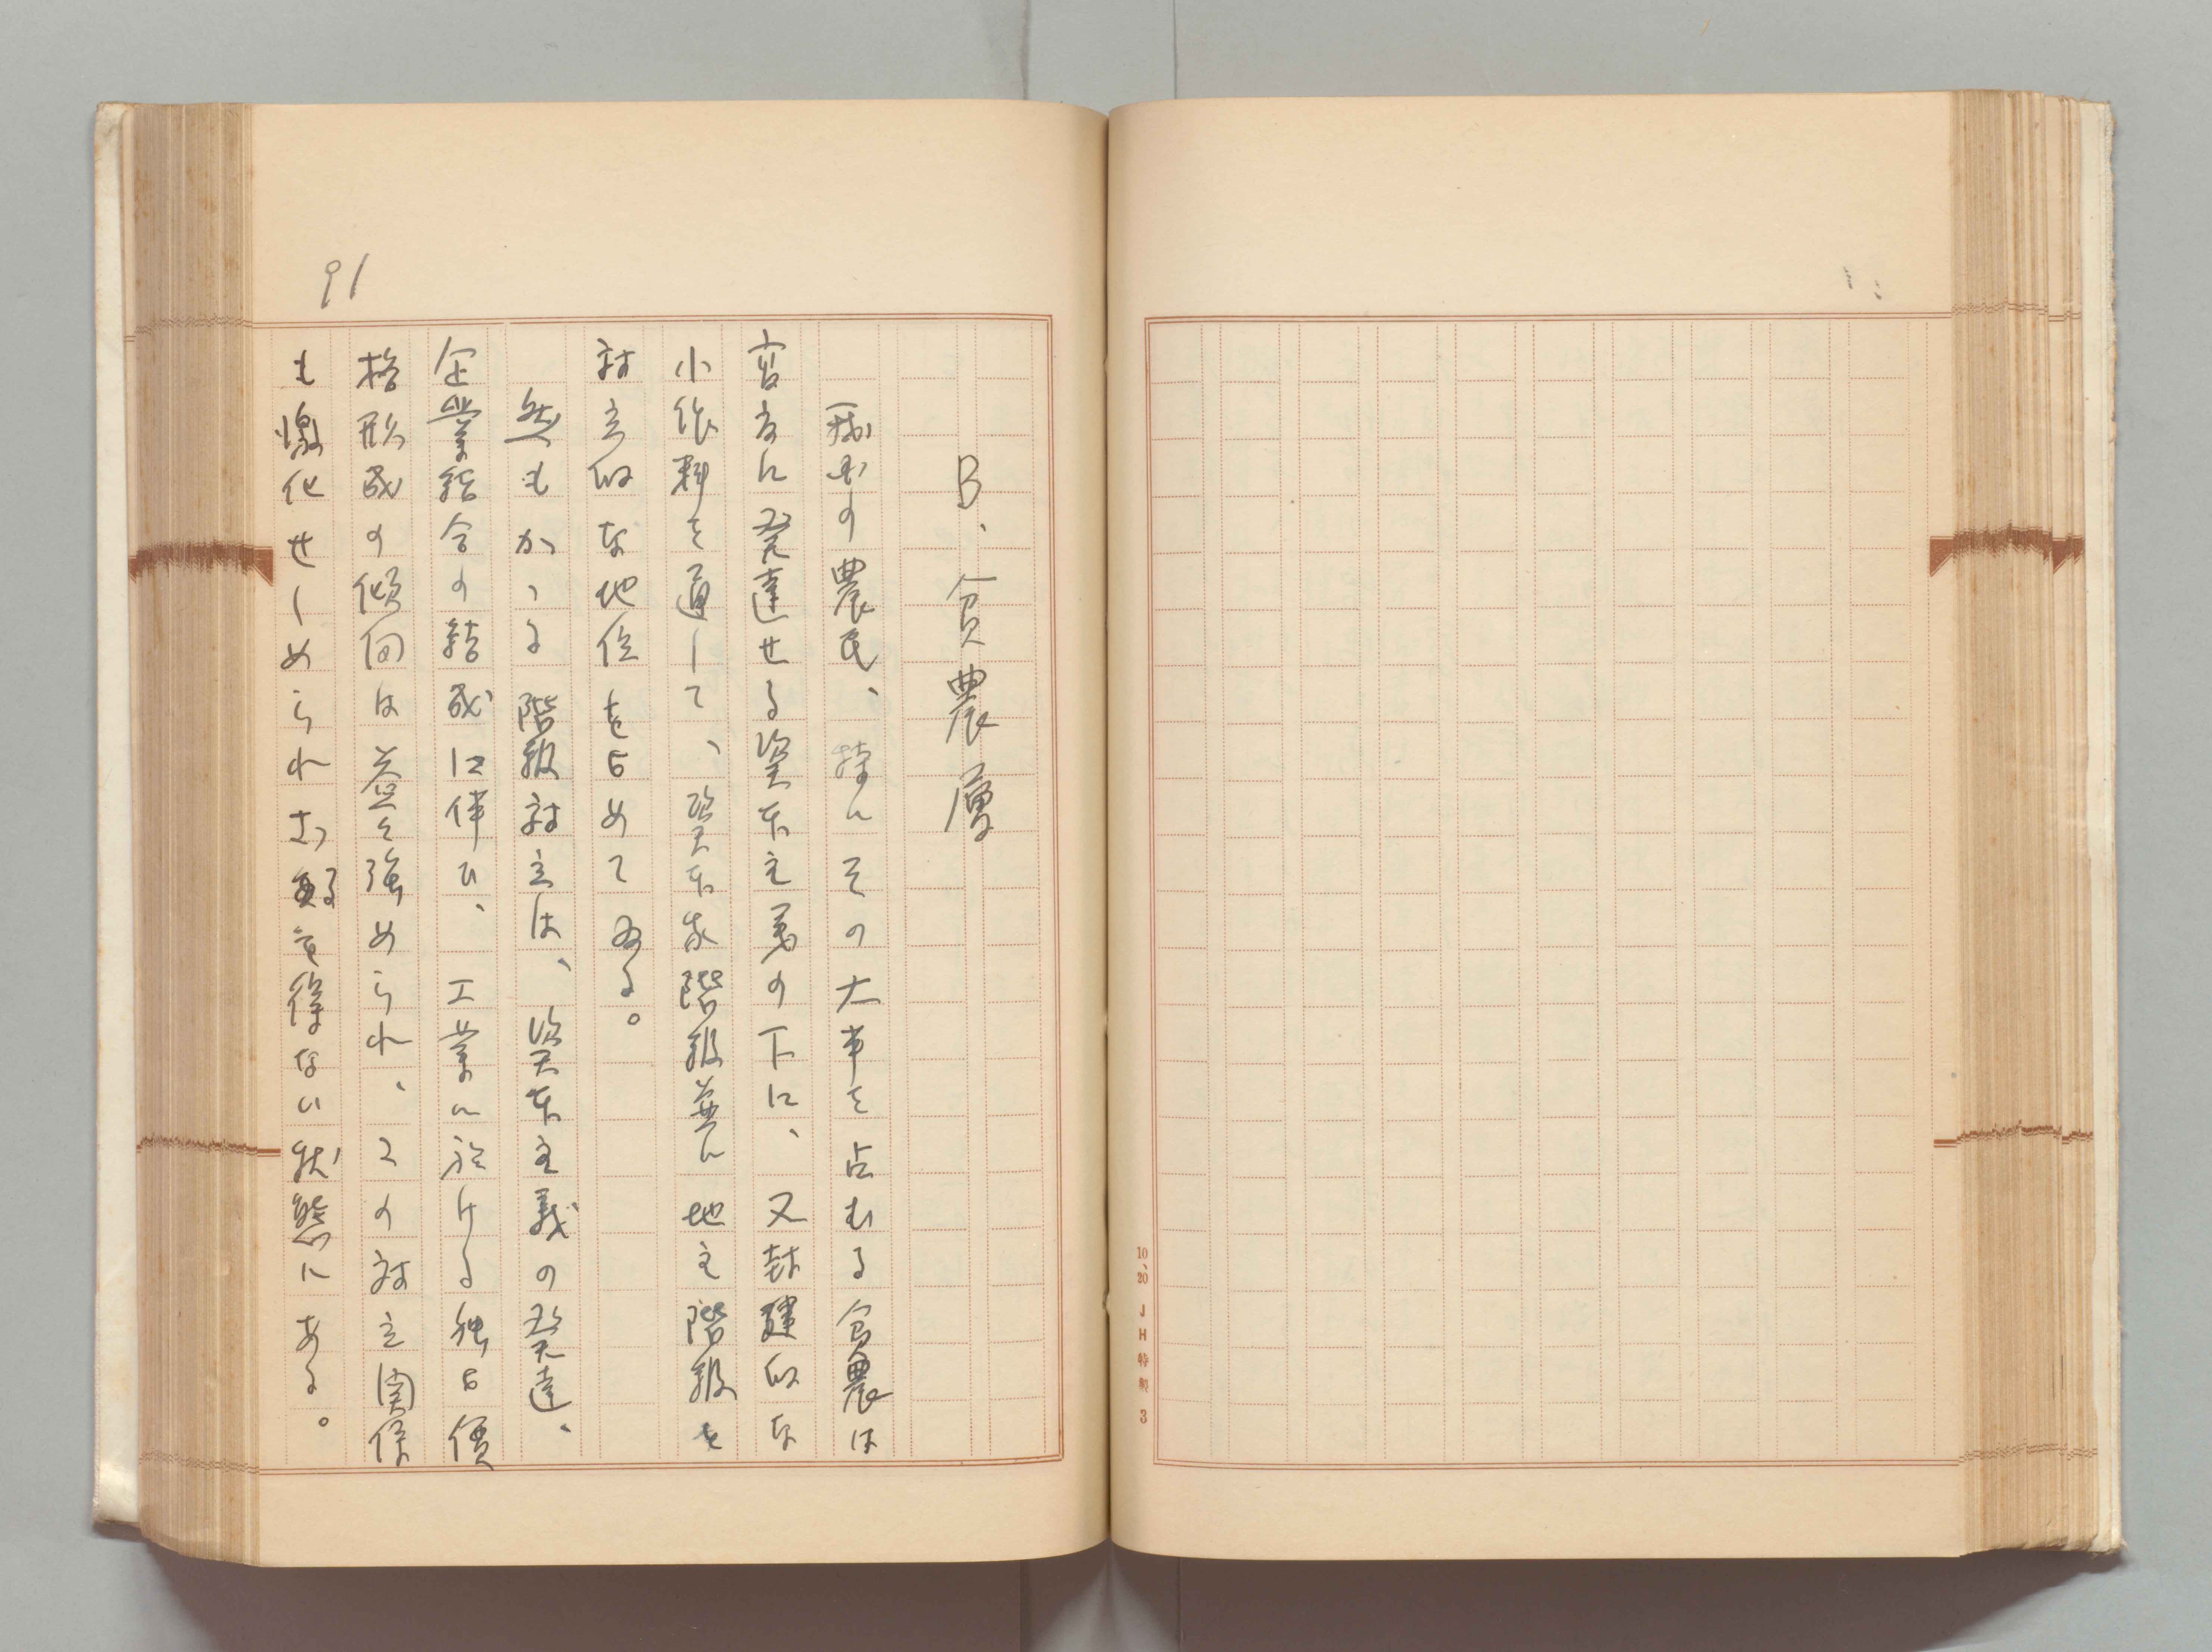 10、20 JH特製 3
91
B、貧農層
我国の農民、特にその大半を占むる貧農は
高度に発達せる資本主義の下に、又封建的な
小作料を通して、資本家階級並に地主階級と
対立的な地位を占めてゐる。
然もかゝる階級対立は、資本主義の発達、
企業結合の結成に伴ひ、工業に於ける独占価
格形成の傾向は益々強められ、この対立関係
も激化せしめられざるを得ない状態にある。